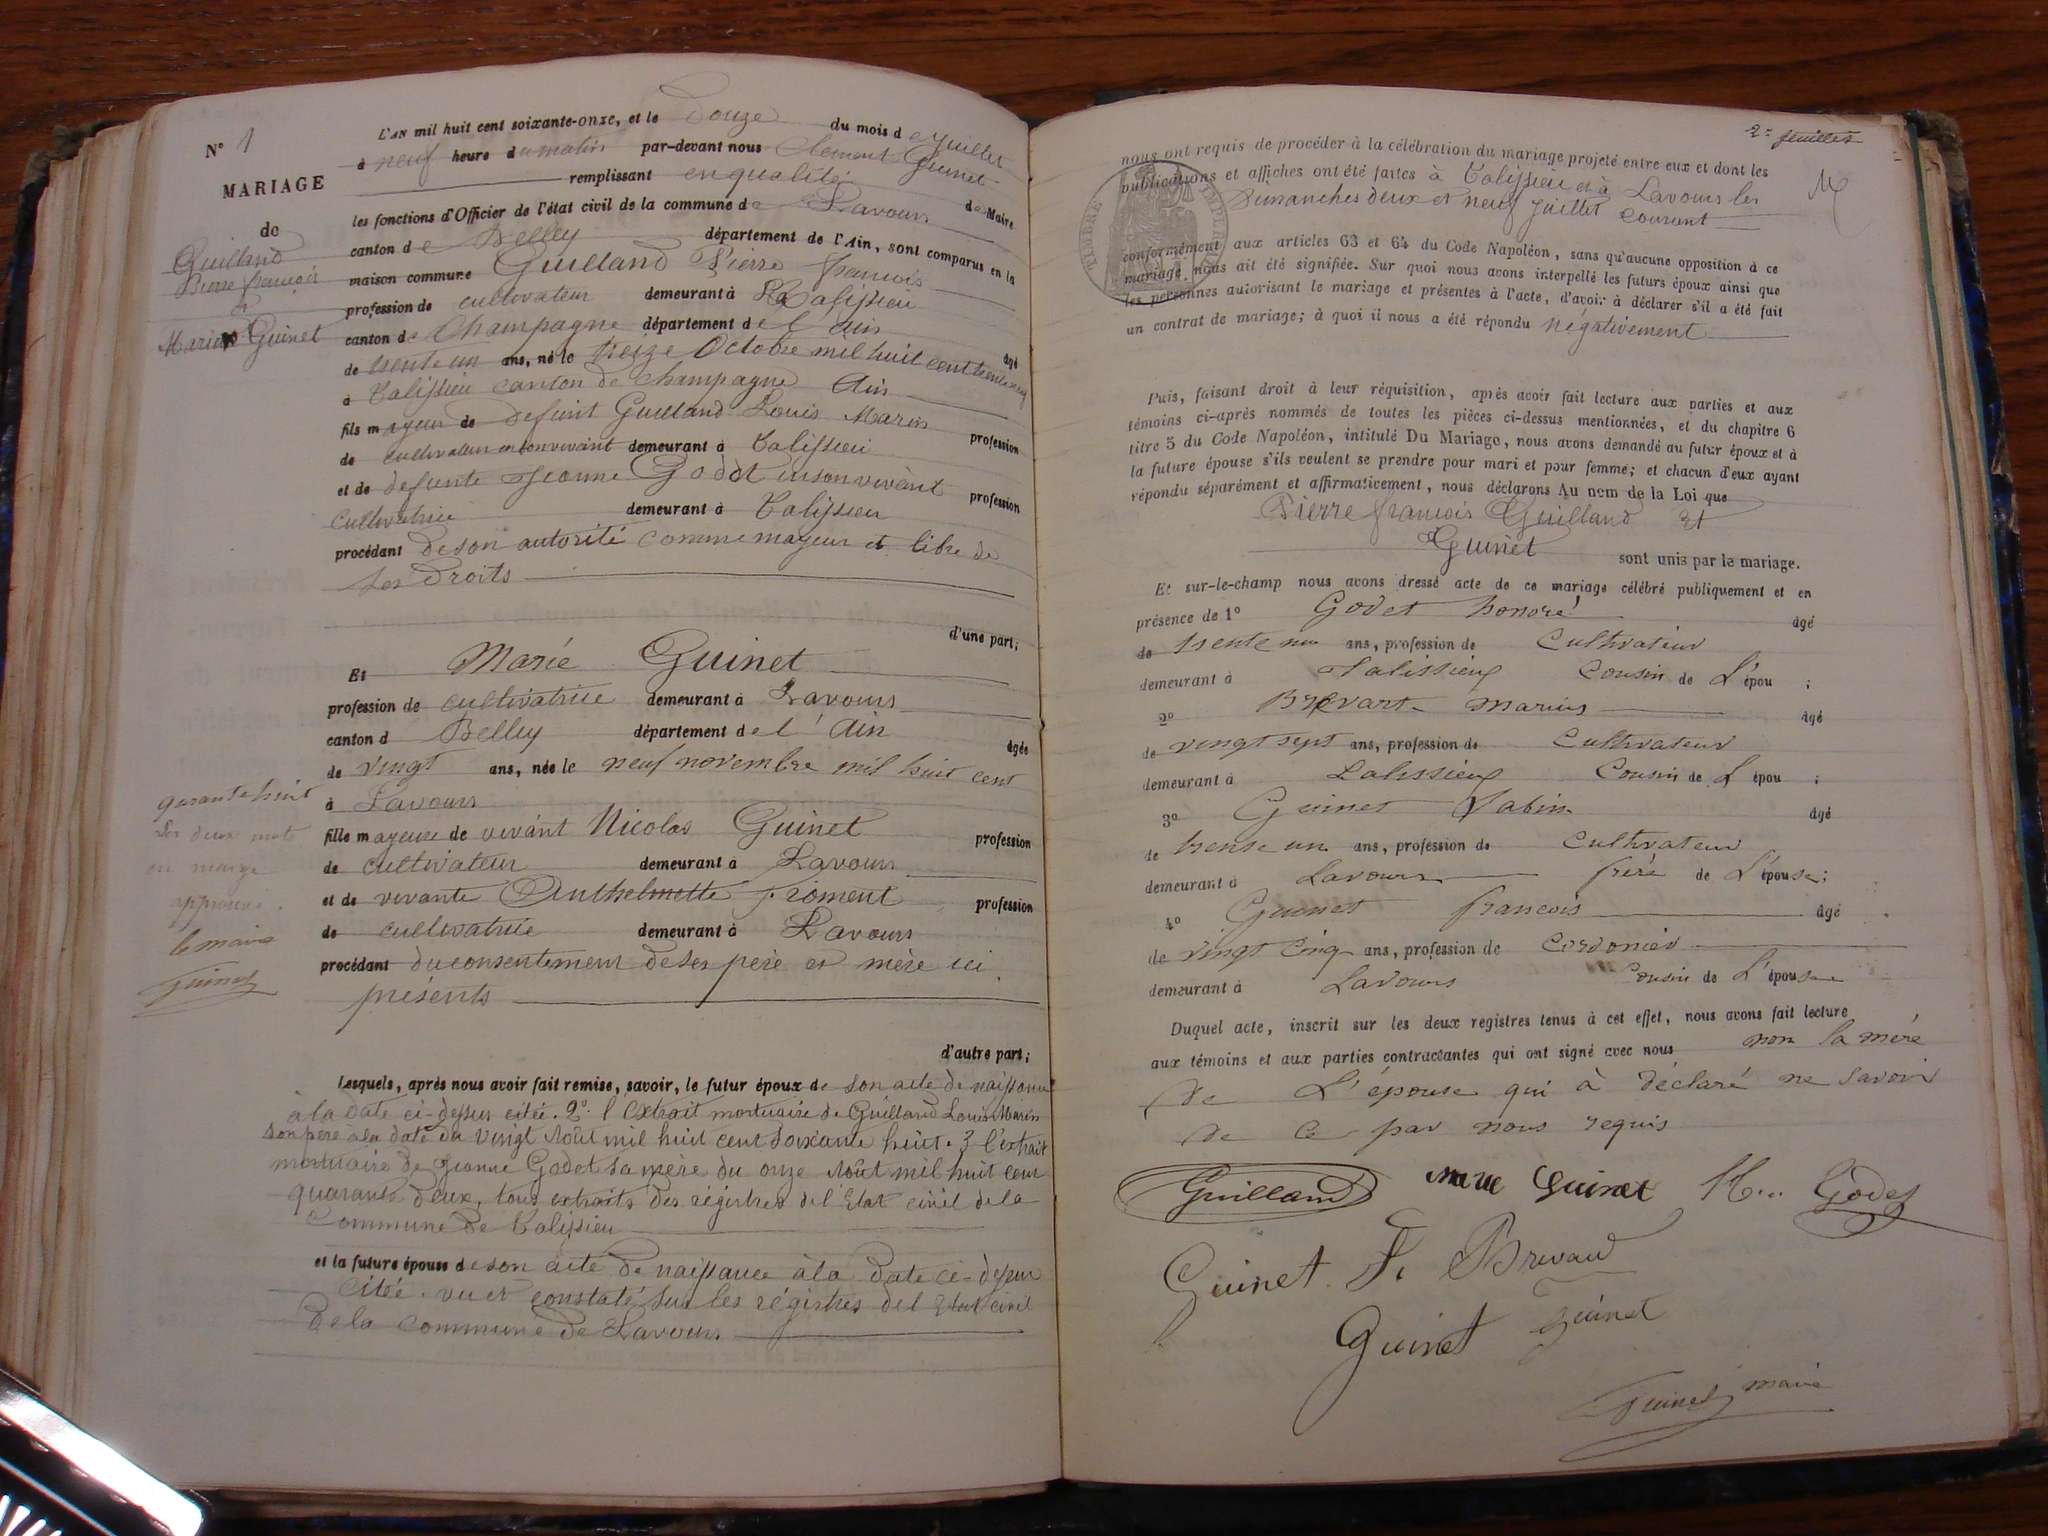 N° 1
MARIAGE
de
Guilland
Pierre françois
Et
Marie Guinet
L'AN mil huit cent soixante-onze, et le Douze du mois de Juillet
à neuf heure du matin par-devant nous Clement Guinet
remplissant en qualité de Maire
les fonctions d'Officier de l'état civil de la commune de Lavours
canton de Belley département de l'Ain, sont comparus en la
maison commune Guilland Pierre francois
profession de cultivateur demeurant à Talissieu
canton de Champagne département de l'Ain
âgé
de trente un ans, né le treize Octobre mil huit cent trente neuf
à Talissieu canton de Champagne Ain
fils mayeur de defunt Guilland Louis Marin
profession
de cultivateur en son vivant demeurant à Talissieu
et de defunte Jeanne Godet en son vivant
profession
Cultivatrice demeurant à Talissieu
procédant de son autorité comme mayeur et libre de
ses Droits
d'une part;
Et Marie Guinet
profession de cultivatrice demeurant à Lavours
canton d Belley département de l'Ain
âgée
de vingt ans, née le neuf novembre mil huit cent
à Lavours
quarante huit
Les deux mots
en marge
approuvé.
le maire
Guinet
fille mayeure de vivant Nicolas Guinet
profession
de cultivateur demeurant à Lavours
et de vivante Anthelmette froment
profession
de cultivatrice demeurant à Lavours
procédant du consentement de ses père et mère ici
présents
d'autre part;
Lesquels, après nous avoir fait remise, savoir, le futur époux de son acte de naissance
à la date ci-dessus citée. 2° l'extrait mortuaire de Guilland Louis Marin
son père à la date du vingt Août mil huit cent soixante huit. 3 l'extrait
mortuaire de Jeanne Godet sa mère du onze Août mil huit cent
quarante deux, tous extraits des régistres de l'Etat civil de la
Commune de Talissieu
et la future épouse de son acte de naissance à la date ci-dessus
citée. vu et constaté sur les régistres de l'Etat civil
de la commune de Lavours
2e feuillet
nous ont requis de procéder à la célébration du mariage projeté entre eux et dont les
publications et affiches ont été faites à Talissieu et à Lavours les
Dimanches deux et neuf Juillet courant
TIMBRE IMPERIAL
conformément aux articles 63 et 64 du Code Napoléon, sans qu'aucune opposition à ce
mariage nous ait été signifiée. Sur quoi nous avons interpellé les futurs époux ainsi que
les personnes autorisant le mariage et présentes à l'acte, d'avoir à déclarer s'il a été fait
un contrat de mariage; à quoi il nous a été répondu négativement
Puis, faisant droit à leur réquisition, après avoir fait lecture aux parties et aux
témoins ci-après nommés de toutes les pièces ci-dessus mentionnées, et du chapitre 6
titre 5 du Code Napoléon, intitulé Du Mariage, nous avons demandé au futur époux et à
la future épouse s'ils veulent se prendre pour mari et pour femme; et chacun d'eux ayant
répondu séparément et affirmativement, nous déclarons Au nom de la Loi que
Pierre francois Guilland Et
Guinet sont unis par le mariage.
Et sur-le-champ nous avons dressé acte de ce mariage célébré publiquement et en
présence de 1° Godet honoré âgé
de trente un ans, profession de Cultivateur
demeurant à Talissieux Cousin de L'épou ;
2° Brevart marius âgé
de vingt sept ans, profession de Cultivateur
demeurant à Talissieux Cousin de L'épou ;
3° Guinet Sabin âgé
de trente un ans, profession de Cultivateur
demeurant à Lavours frère de L'épouse;
4° Guinet francois âgé
de vingt cinq ans, profession de Cordonier
demeurant à Lavours Cousin de L'épouse
Duquel acte, inscrit sur les deux registres tenus à cet effet, nous avons fait lecture
aux témoins et aux parties contractantes qui ont signé avec nous non la mère
de L'épouse qui à déclaré ne savoir
de ce par nous requis
Guilland marie Guinet H. Godet
Guinet F. Brevard
Guinet Guinet
Guinet maire